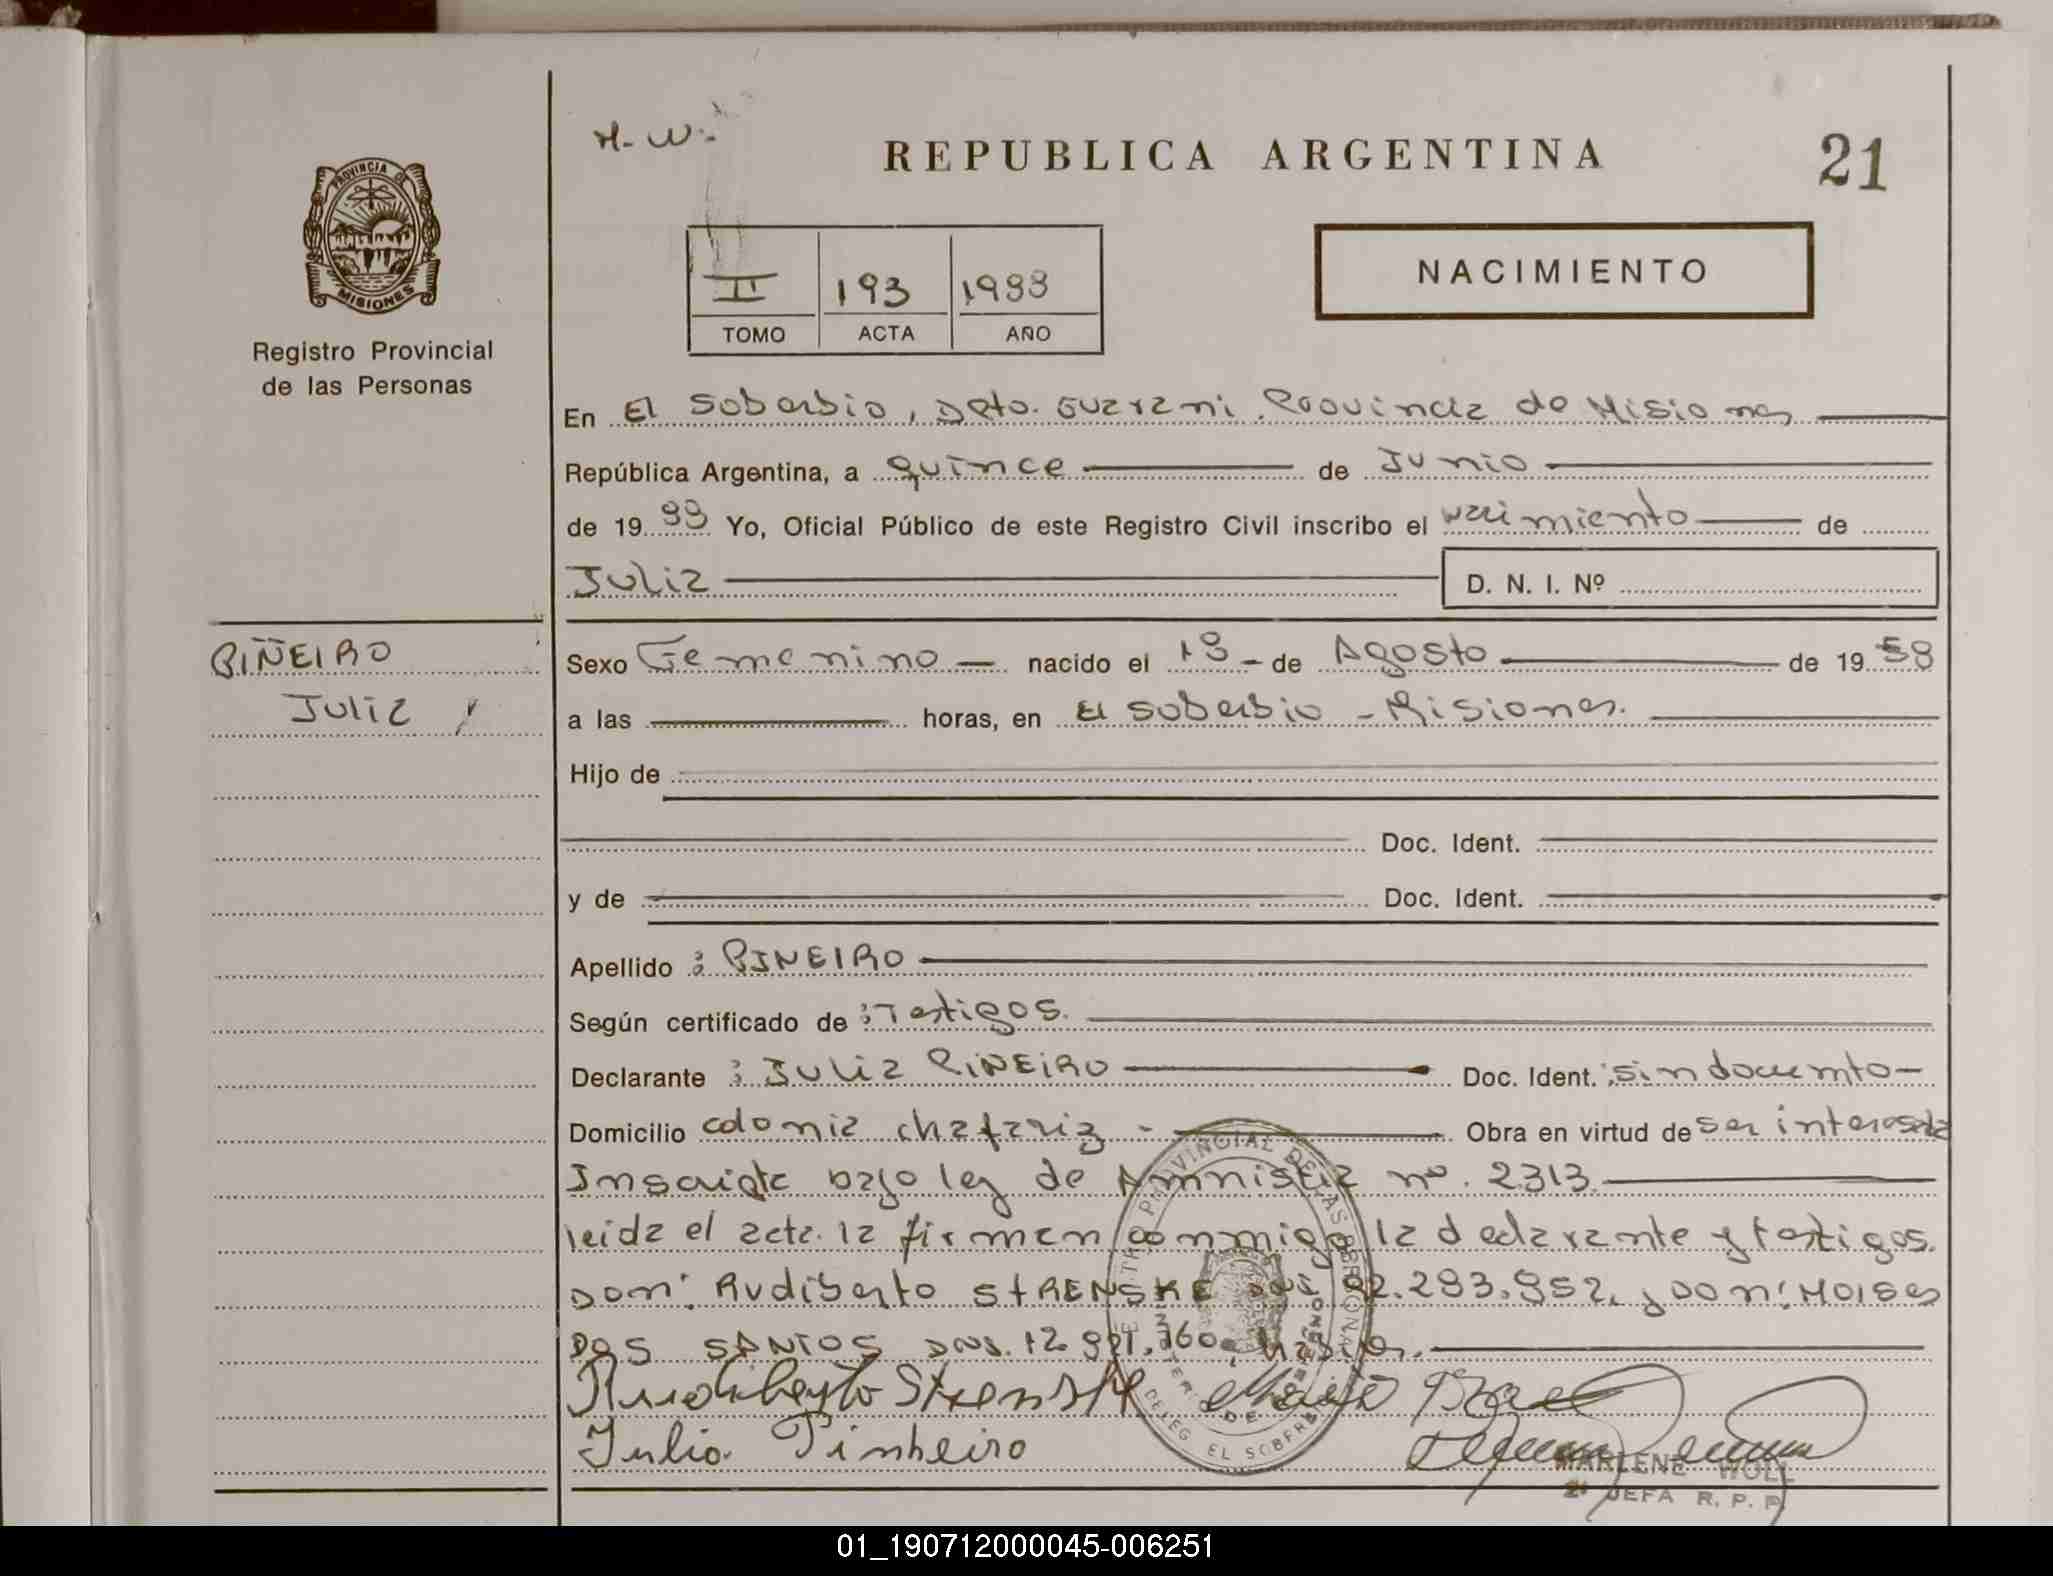 H. W.
REPUBLICA ARGENTINA
21
PROVINCIA DE
MISIONES
Registro Provincial
de las Personas
II 193 1988
TOMO ACTA AÑO
NACIMIENTO
En El Soberbio, Dpto. Guarani. Provincia de Misiones
República Argentina, a quince de Junio
de 19 88 Yo, Oficial Público de este Registro Civil inscribo el nacimiento de
Julia D. N. I. Nº
PIÑEIRO
Julia
Sexo Femenino nacido el 18 - de Agosto de 19 58
a las horas, en El Soberbio - Misiones.
Hijo de
Doc. Ident.
y de Doc. Ident.
Apellido : PINEIRO
Según certificado de : Testigos.
Declarante : Julia PIÑEIRO Doc. Ident. : sin documto
Domicilio colonia chafariz - Obra en virtud de ser interesada
Inscripta bajo ley de Amnistia nº. 2313.
leida el acta. la firman conmigo la declarante y testigos.
Don: Rudiberto STRENSKE DNI 92.293.952, y Don: MOISES
DOS SANTOS DNI.
Rudiberto Strenske
Julia Pinheiro
REGISTRO PROVINCIAL DE LAS PERSONAS
MINISTERIO DE GOBIERNO
DELEG. EL SOBERBIO
MARLENE WOLL
2ª JEFA R. P. P.
01_190712000045-006251